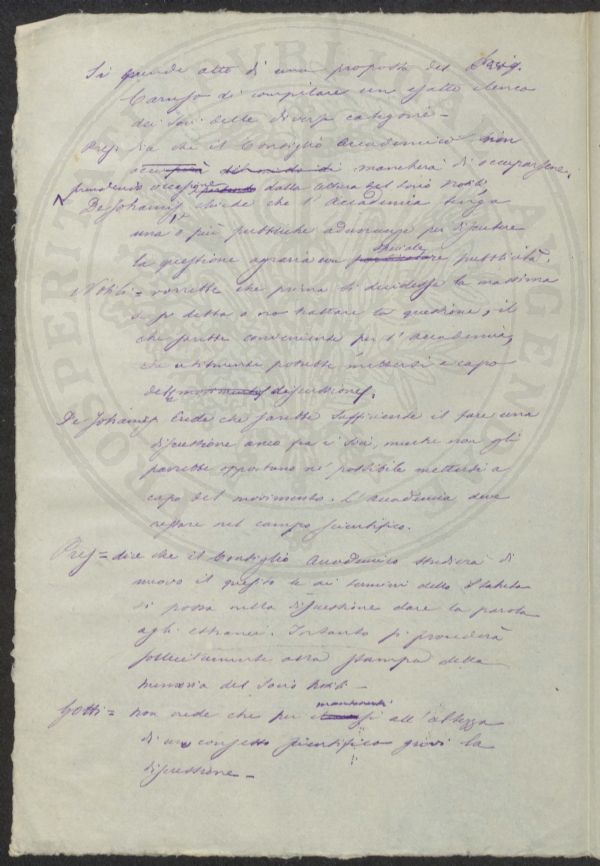 Si prende atto di una proposta del Sig.
Caruso di compilare un esatto elenco
dei Soci delle diverse categorie –
Pres: dice che il Consiglio Accademico non
mancherà di occuparsene,
prendendo occasione dalla lettera del Socio Nobili
De Johannis chiede che l'Accademia tenga
una, o più pubbliche adunanze per discutere
la questione agraria con speciale pubblicità.
Nobili = vorrebbe che prima si decidesse la massima
se si debba o no trattare la questione, il
che sarebbe conveniente per l'Accademia,
che altrimenti potrebbe mettersi a capo
della discussione.
De Johannis Crede che sarebbe sufficiente il fare una
discussione anco fra i Soci, mentre non gli
parrebbe opportuno nè possibile mettersi a
capo del movimento. L'Accademia deve
restare nel campo scientifico.
Pres = dice che il Consiglio Accademico studierà di
nuovo il quesito se ai termini dello Statuto
si possa nella discussione dare la parola
agli estranei. Intanto si provvederà
sollecitamente alla stampa della
memoria del Socio Nobili –
Gotti = non vede che per mantenersi all'altezza
di un consesso scientifico giovi la
discussione –
PROSPERITATI PVBLICAE AVGENDAE